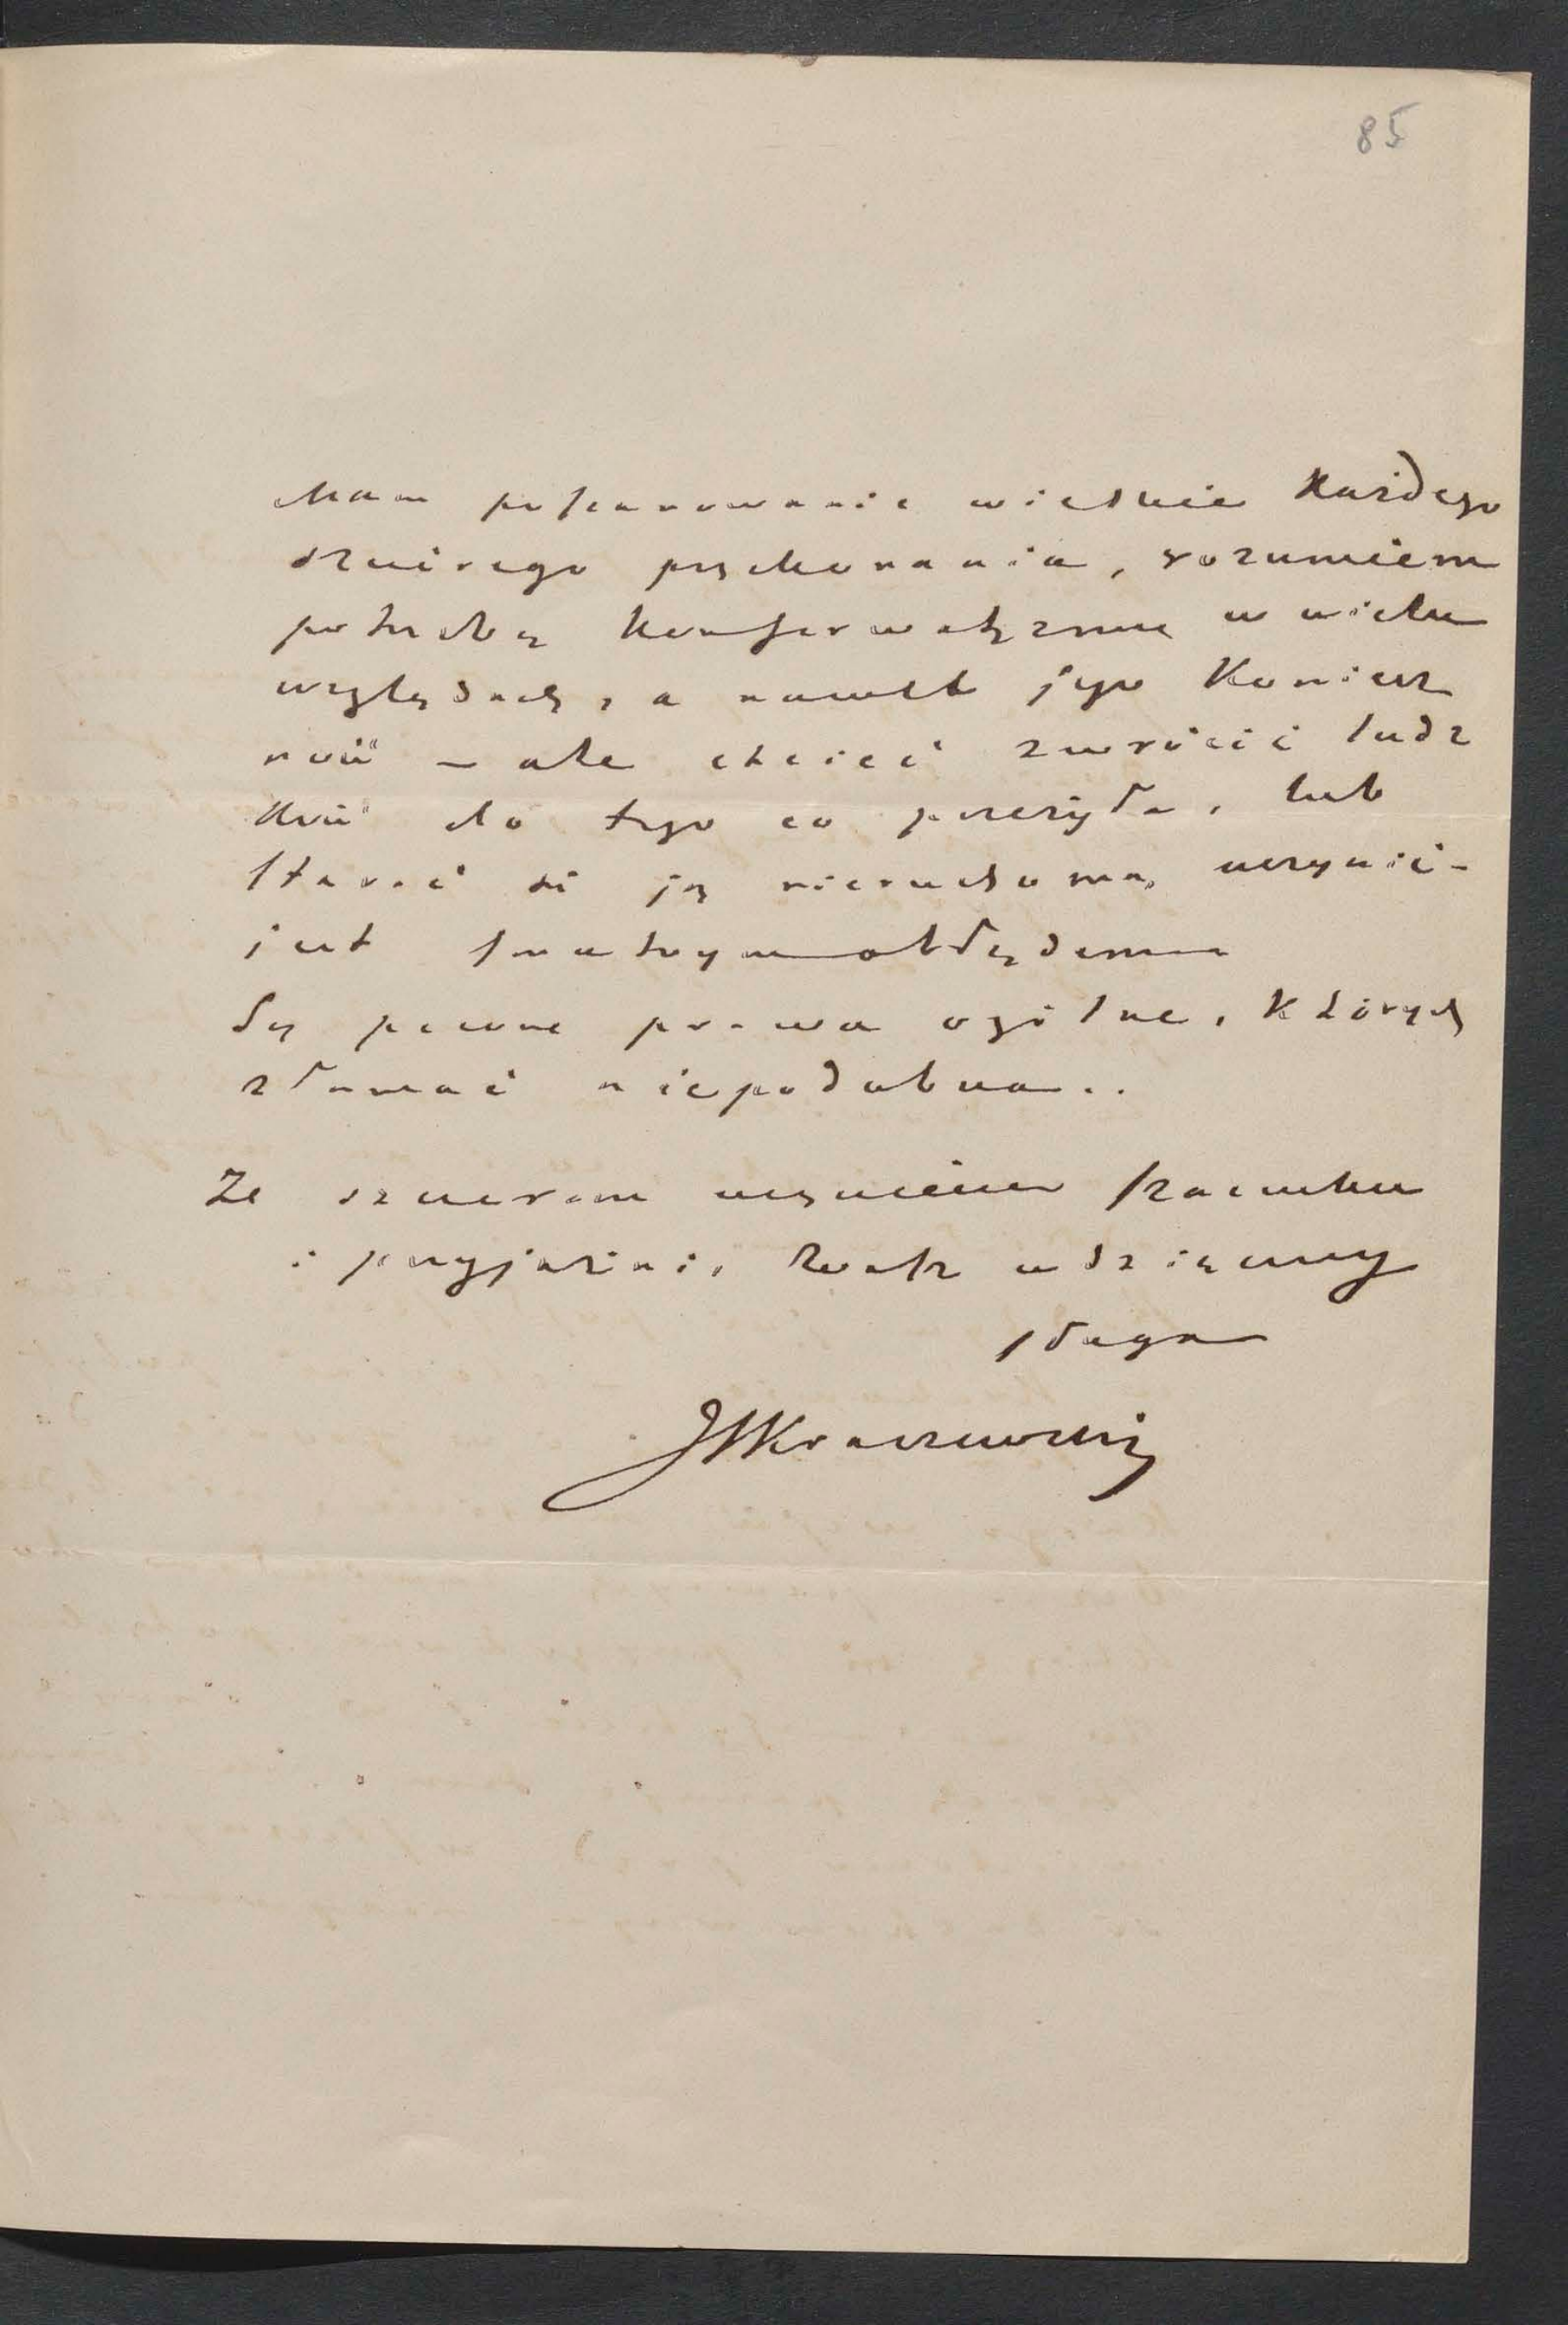 85
Mam poszanowanie wielkie każdego
szczérego przekonania, rozumiem
potrzebę konserwatyzmu w wielu
względach, a nawet jego koniecz
ność – ale chcieć zwrócić ludz
kość do tego co przeżyła, lub
starać się ją nieruchomą uczynić –
jest smutnym obłędem
Są pewne prawa ogólne, których
złamać niepodobna..
Ze szczerem uczuciem szacunku
i przyjaźni, zawsze wdzięczny
sługa
JIKraszewski